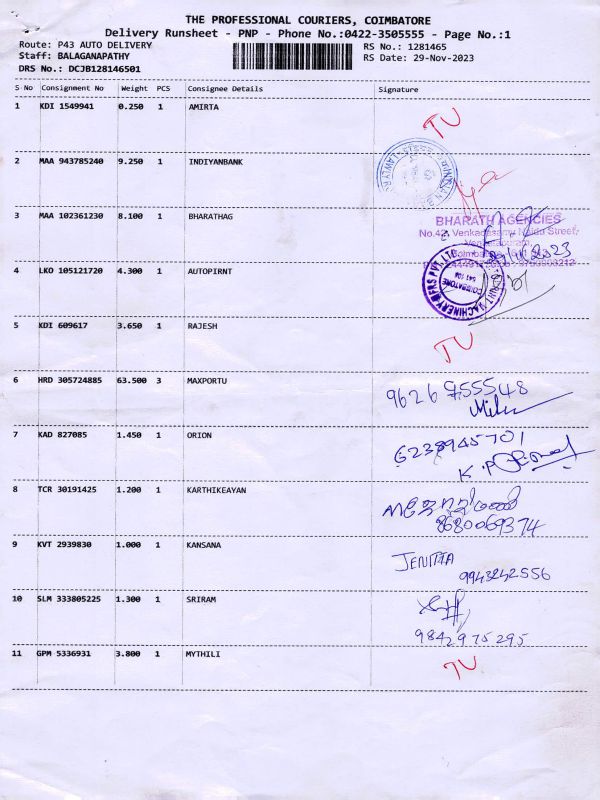 THE PROFESSIONAL COURIERS, COIMBATORE
Delivery Runsheet - PNP - Phone No.:0422-3505555 - Page No.:1
Route: P43 AUTO DELIVERY
RS No.: 1281465
Staff: BALAGANAPATHY
RS Date: 29-Nov-2023
DRS No.: DCJB128146501
S No Consignment No Weight PCS Consignee Details Signature
1 KDI 1549941 0.250 1 AMIRTA
TU
2 MAA 943785240 9.250 1 INDIYANBANK
3 MAA 102361230 8.100 1 BHARATHAG
BHARATH AGENCIES
No.42, Venkadasamy Naidu Street,
4 LKO 105121720 4.300 1 AUTOPIRNT
COIMBATORE
5 KDI 609617 3.650 1 RAJESH
TU
6 HRD 305724885 63.500 3 MAXPORTU
7 KAD 827085 1.450 1 ORION
6238945701
8 TCR 30191425 1.200 1 KARTHIKEAYAN
8680069374
9 KVT 2939830 1.000 1 KANSANA
JENITTA
9943242556
10 SLM 333805225 1.300 1 SRIRAM
9842975295
11 GPM 5336931 3.800 1 MYTHILI
TU